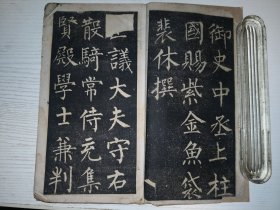 御史中丞上柱
國賜紫金魚袋
裴休撰
議大夫守右
散騎常侍充集
賢殿學士兼判